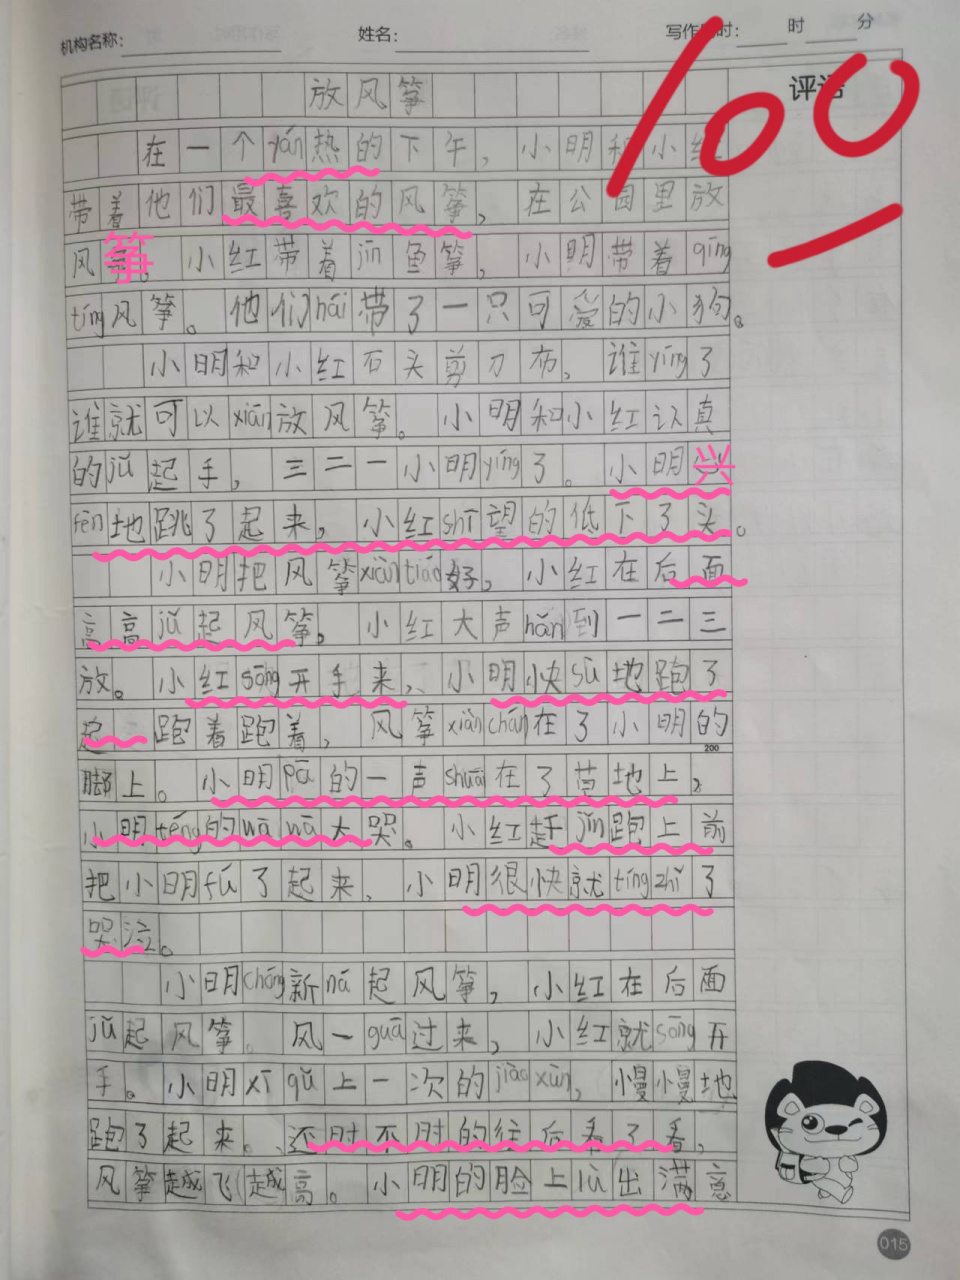 机构名称: 姓名: 写作用时: 时 分
评语
100
放风筝
在一个yán热的下午，小明和小红
带着他们最喜欢的风筝，在公园里放
风筝。小红带着jīn鱼筝，小明带着qīng
tíng风筝。他们hái带了一只可爱的小狗。
小明和小红石头剪刀布，谁yíng了
谁就可以xiān放风筝。小明和小红认真
的jǔ起手，三二一小明yíng了。小明兴
fèn地跳了起来，小红shī望的低下了头。
小明把风筝xiàn tiáo好，小红在后面
高高jǔ起风筝，小红大声hǎn到一二三
放。小红sōng开手来，小明快sù地跑了
起来跑着跑着，风筝xiàn chán在了小明的
200
脚上。小明pā的一声shuāi在了草地上，
小明téng的wā wā大哭。小红赶jǐn跑上前
把小明fú了起来，小明很快就tíng zhǐ了
哭泣。
小明chóng新ná起风筝，小红在后面
jǔ起风筝。风一guā过来，小红就sōng开
手。小明xī qǔ上一次的jiào xùn，慢慢地
跑了起来。还时不时的往后看了看，
风筝越飞越高。小明的脸上lù出满意
015